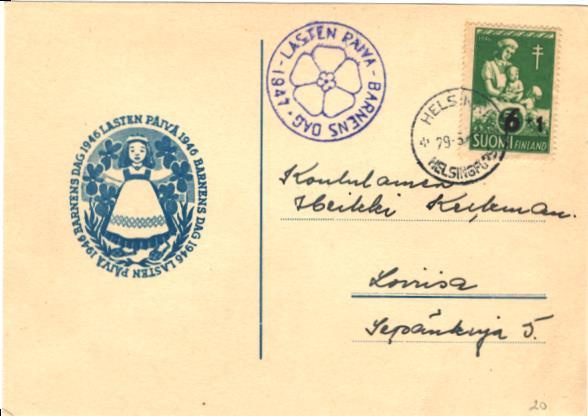 BARNENS DAG 1946 LASTEN PÄIVÄ 1946 BARNENS DAG 1946 LASTEN PÄIVÄ 1946
LASTEN PÄIVÄ - BARNENS DAG - 1947 -
HELSIN
29
HELSINGFO
1946
6 +1
SUOMI FINLAND
Heikki
Loviisa
Sepänkuja 5.
20